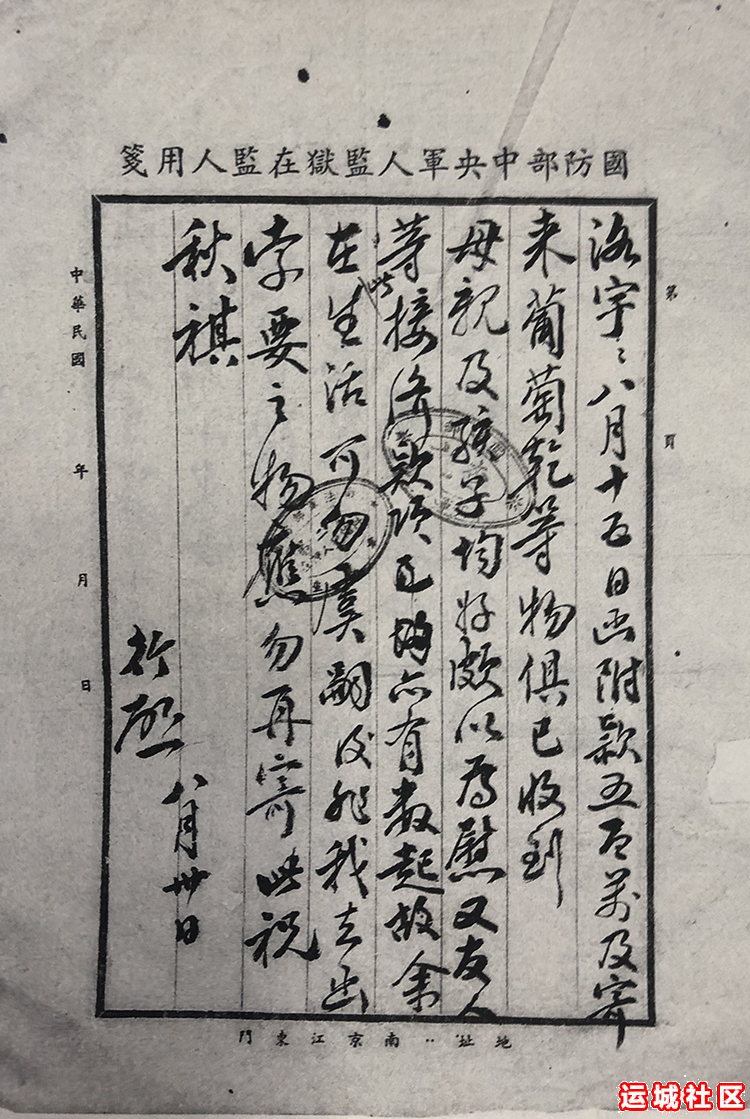 國防部中央軍人監獄在監人用箋
第 頁
洛宇：八月十五日函附款五百萬及寄
来葡萄乾等物俱已收到
母親及孩子均好頗以为慰又友人
等接濟款項已 亦有数起故余
在此生活可勿虞嗣後非我去函
索要之物應勿再寄此祝
秋祺
八月卅日
中華民國 年 月 日
地址：南京江東門
运城社区